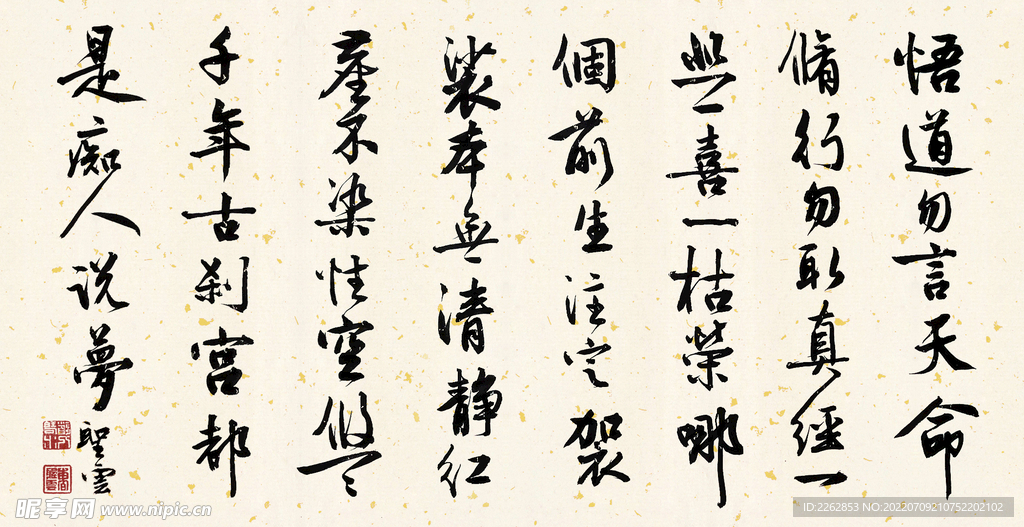 悟道勿言天命
脩行勿取真經一
悲一喜一枯榮哪
個前生注定袈
裟本無清靜紅
塵不染性空悠〻
千年古刹宮都
是痴人说夢
聖雲
昵享网 www.nipic.cn
ID:2262853 NO:20220709210752202102